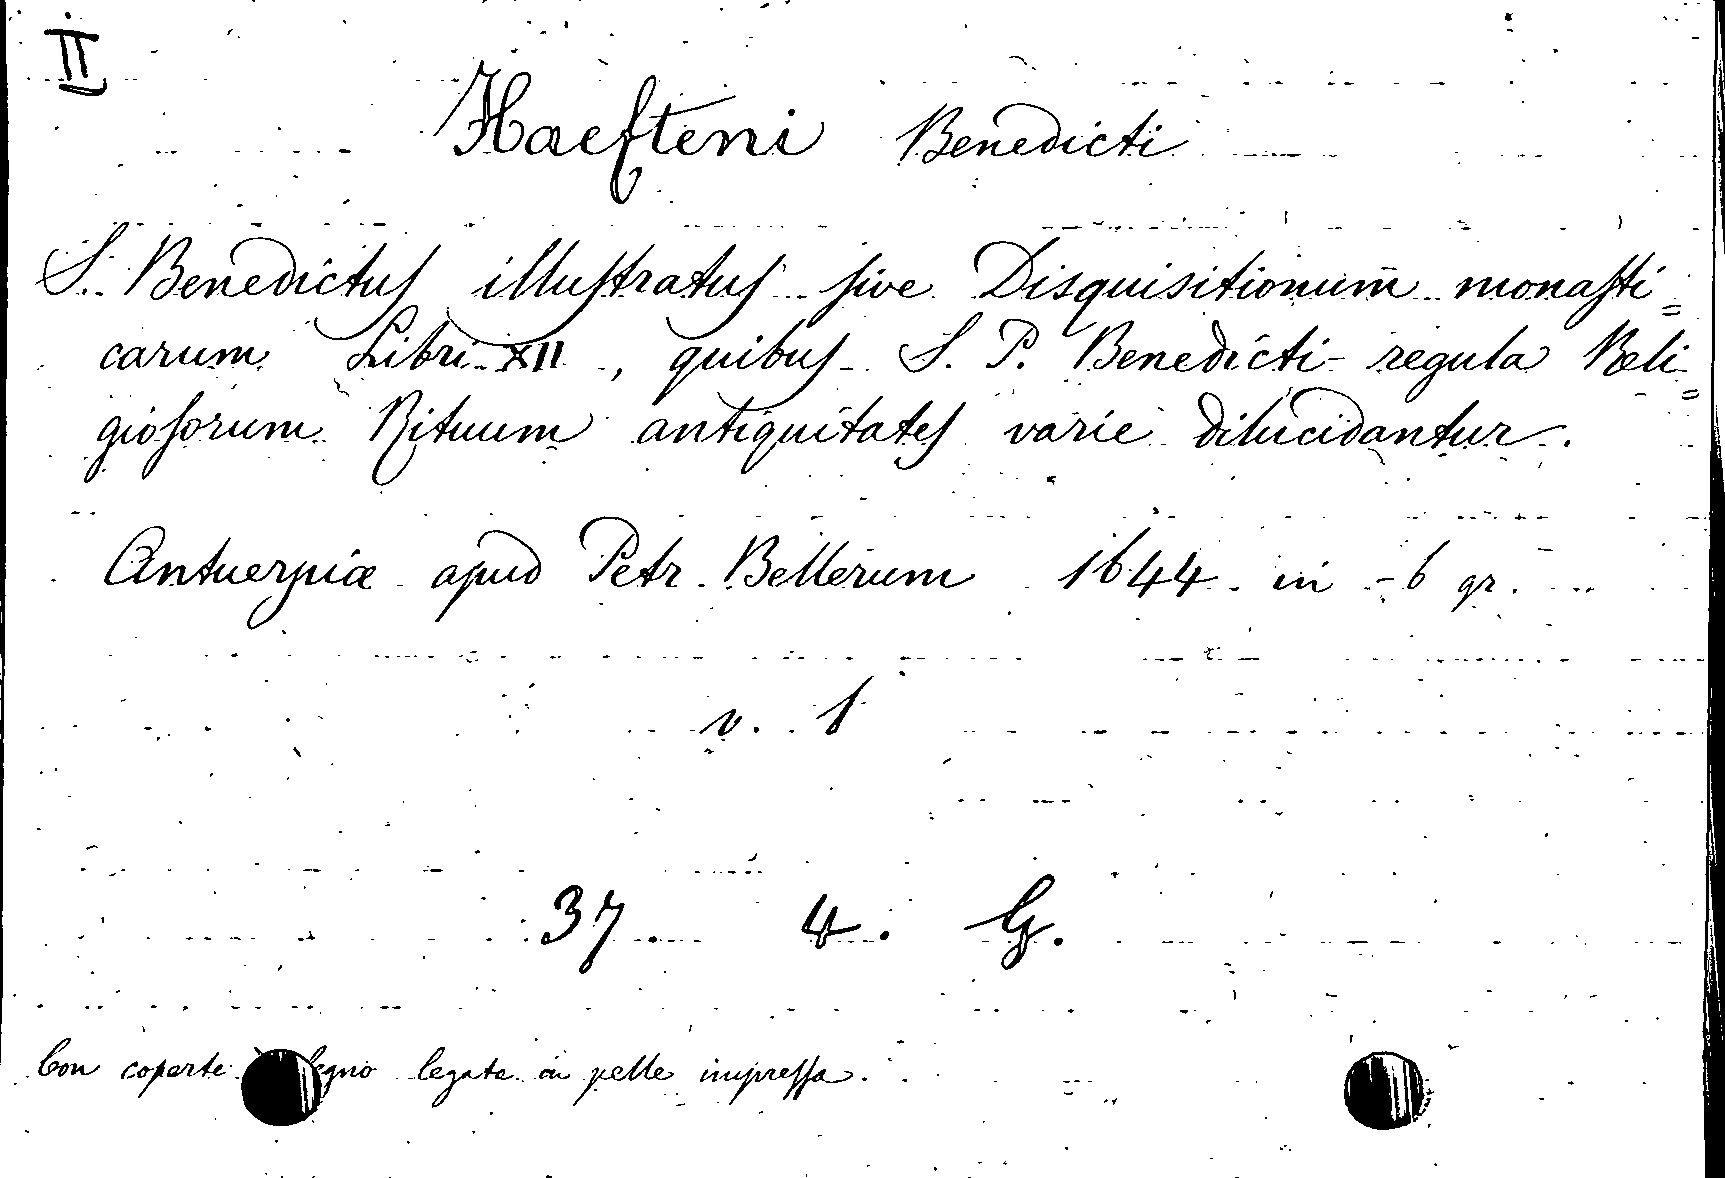 II
Haefteni Benedicti
S. Benedictus illustratus sive Disquisitionum monasti=
carum Libri XII, quibus S. P. Benedicti regula Reli=
giosorum Rituum antiquitates varie dilucidantur.
Antuerpiæ apud Petr. Bellerum 1644 in-6 gr.
v. 1
37. 4. G.
Con coperte legno legata in pelle impressa.